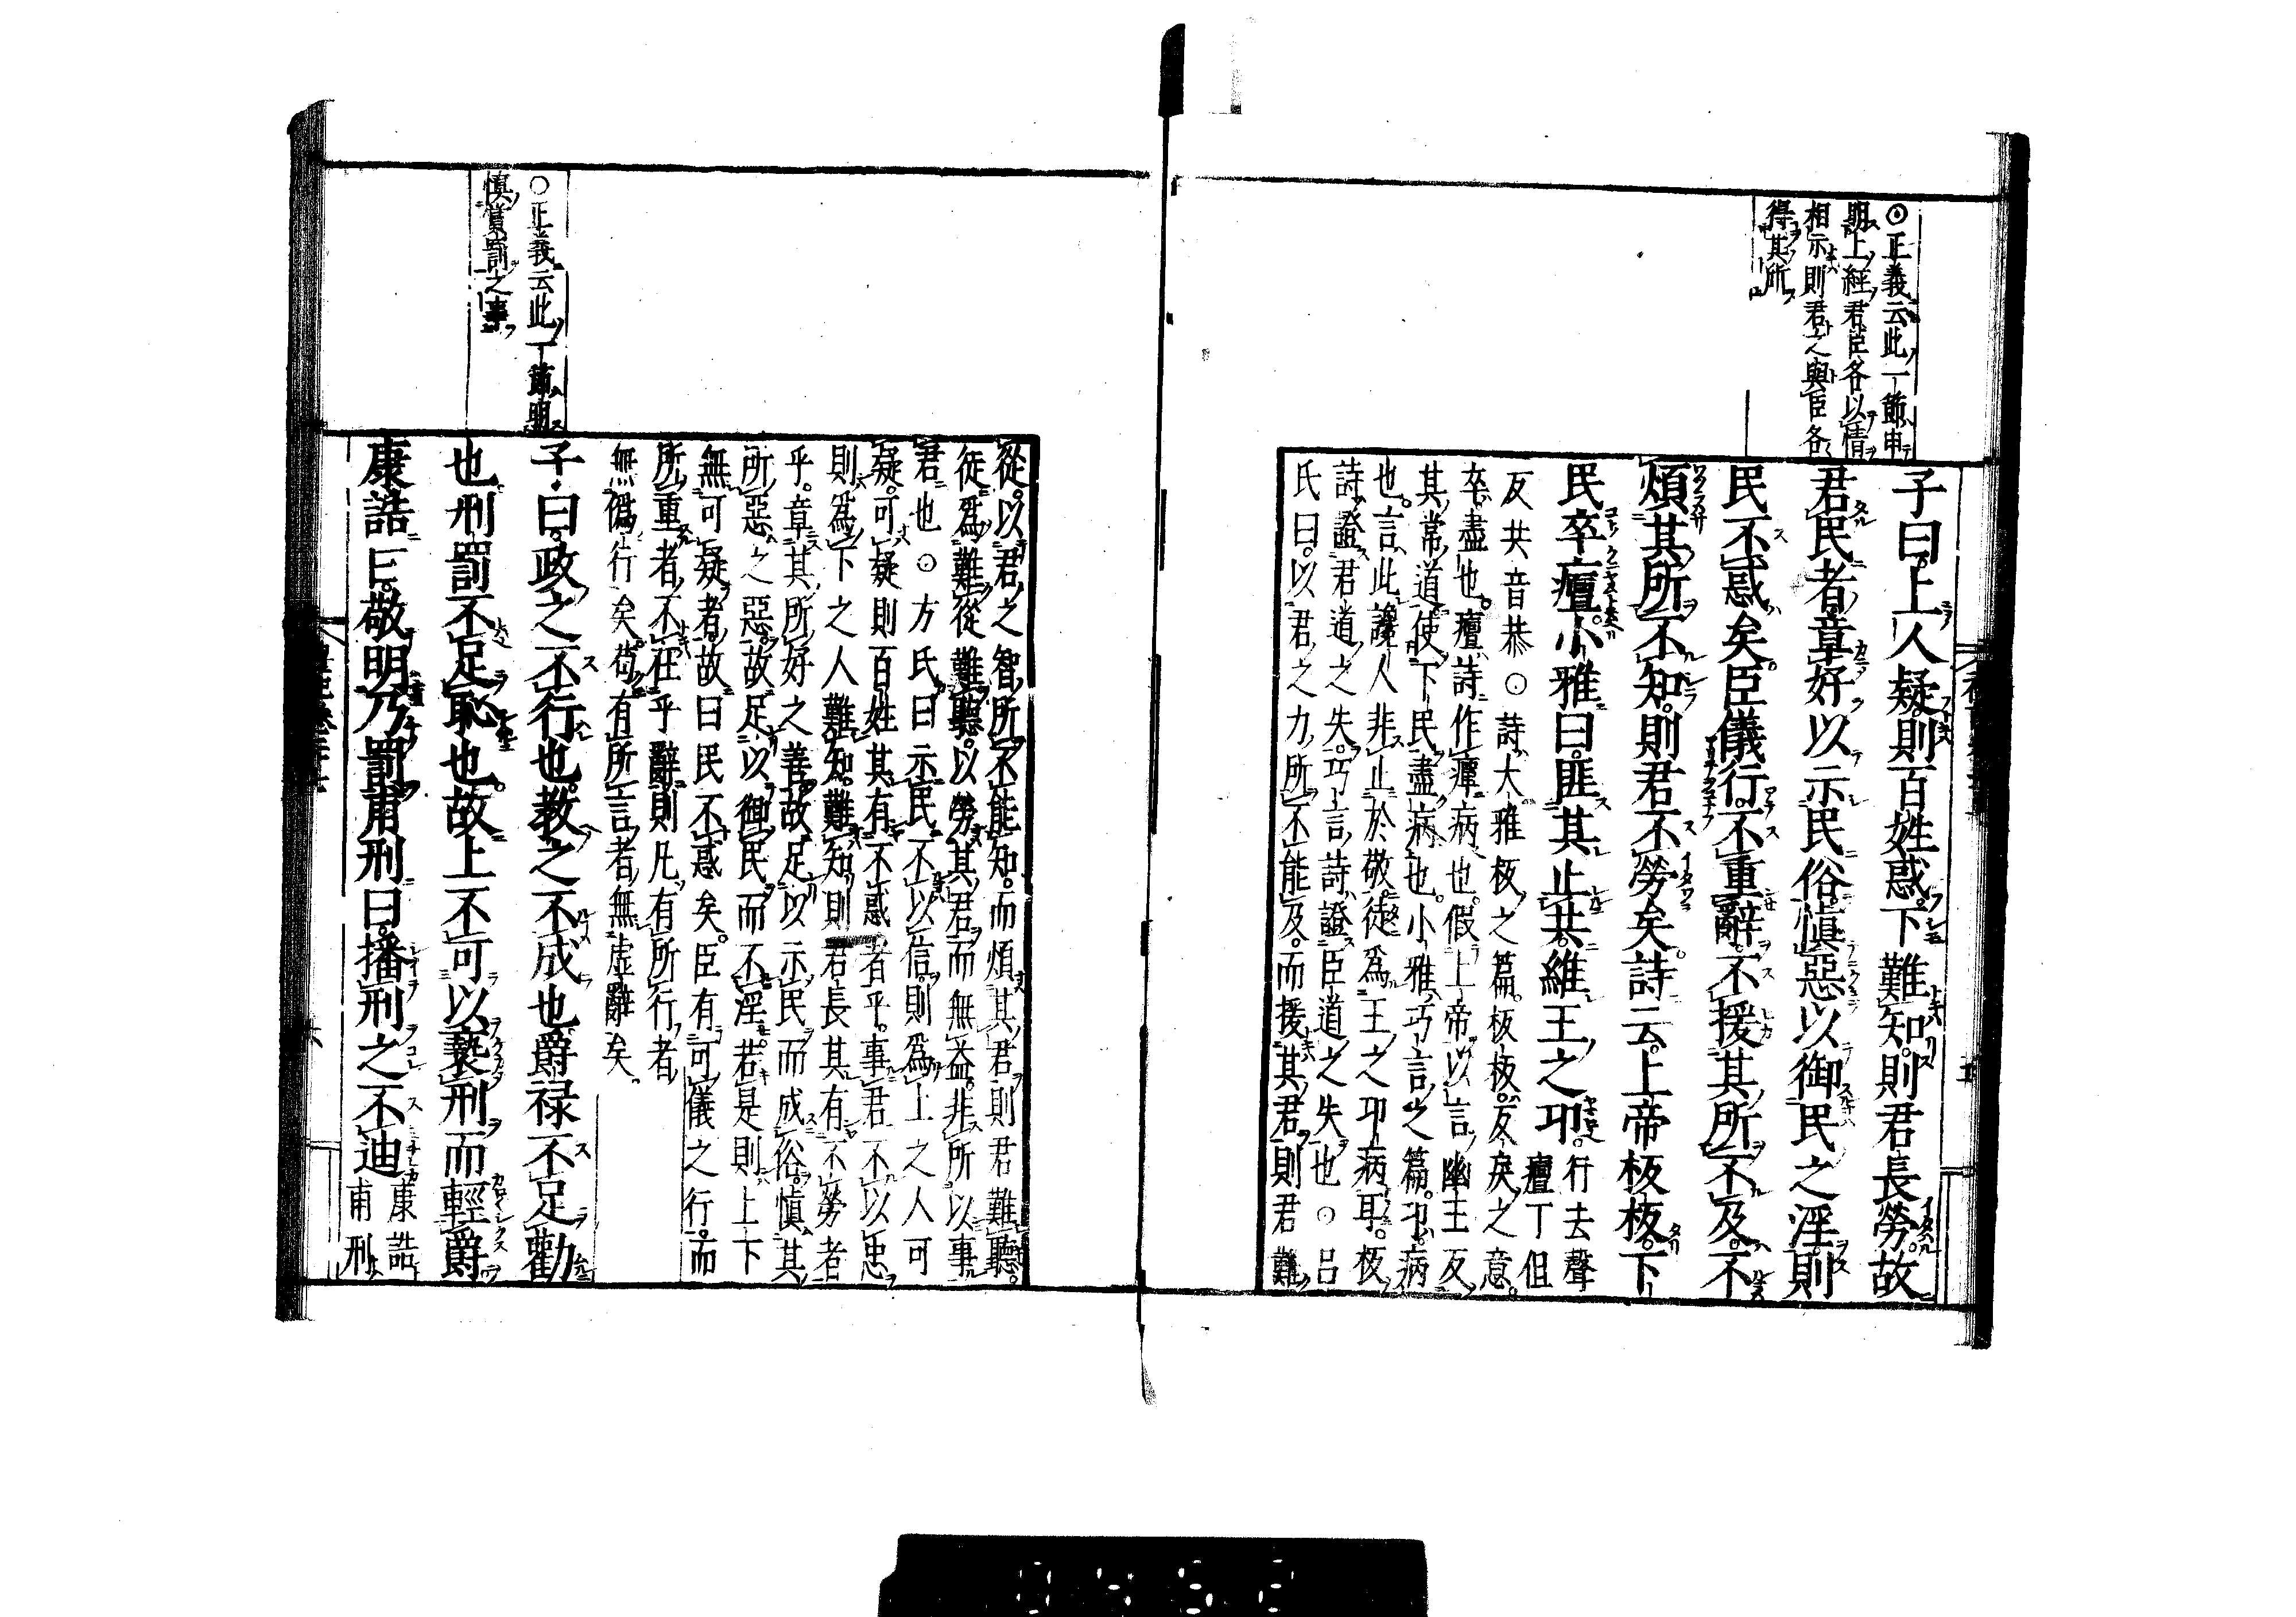 ⊙正義云此一節申
明上經君臣各以情
相示則君之與臣各
得其所
子曰上人疑則百姓惑下難知則君長勞故
君民者章好以示民俗慎惡以御民之淫則
民不惑矣臣儀行不重辭不援其所不及不
煩其所不知則君不勞矣詩云上帝板板下
民卒癉小雅曰匪其止共維王之卭行去聲
癉丁但
反共音恭⊙詩大雅板之篇板板反戾之意
卒盡也癉詩作瘅病也假上帝以言幽王反
其常道使下民盡病也小雅巧言之篇卭病
也言此讒人非止於敬徒為王之卭病耳板
詩證君道之失巧言詩證臣道之失也⊙呂
氏曰以君之力所不能及而援其君則君難
從以君之智所不能知而煩其君則君難聽
徒為難從難聽以勞其君而無益非所以事
君也⊙方氏曰示民不以信則為上之人可
疑可疑則百姓其有不惑者乎事君不以忠
則為下之人難知難知則君長其有不勞者
乎章其所好之善故足以示民而成俗慎其
所惡之惡故足以御民而不淫若是則上下
無可疑者故曰民不惑矣臣有可儀之行而
所重者不在乎辭則凡有所行者
無偽行矣苟有所言者無虛辭矣
○正義云此一節明
慎賞罰之事
子曰政之不行也教之不成也爵祿不足勸
也刑罰不足恥也故上不可以褻刑而輕爵
康誥曰敬明乃罰甫刑曰播刑之不迪康誥
甫刑